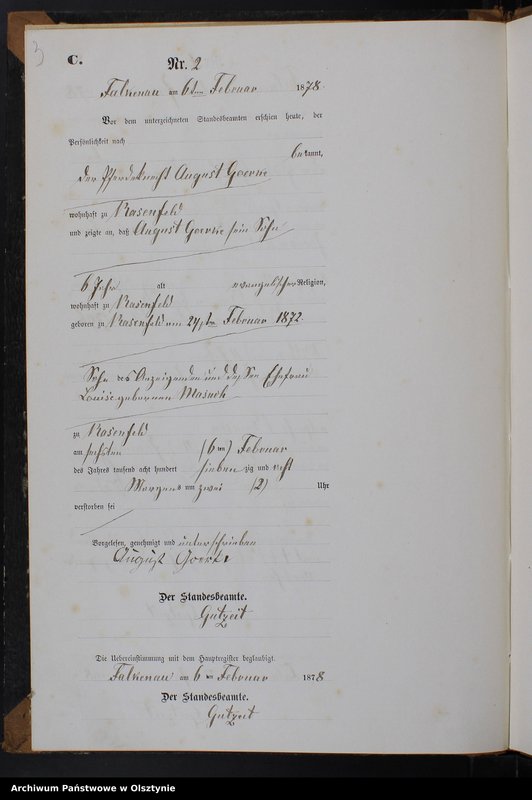 3
C.
Nr. 2
Falkenau am 6ten Februar 1878.
Vor dem unterzeichneten Standesbeamten erschien heute, der
Persönlichkeit nach
bekannt,
der Pferdeknecht August Goerke
wohnhaft zu Rosenfeld
und zeigte an, daß August Goerke sein Sohn
6 Jahr alt evangelischer Religion,
wohnhaft zu Rosenfeld
geboren zu Rosenfeld am 24sten Februar 1872.
Sohn des Anzeigenden und dessen Ehefrau
Louise geborenen
zu Rosenfeld
am sechsten (6ten) Februar
des Jahres tausend acht hundert sieben zig und acht
Morgens um zwei (2) Uhr
verstorben sei
Vorgelesen, genehmigt und unterschrieben
August Goerke
Der Standesbeamte.
Gutzeit
Die Uebereinstimmung mit dem Hauptregister beglaubigt.
Falkenau am 6ten Februar 1878
Der Standesbeamte.
Gutzeit
Archiwum Państwowe w Olsztynie